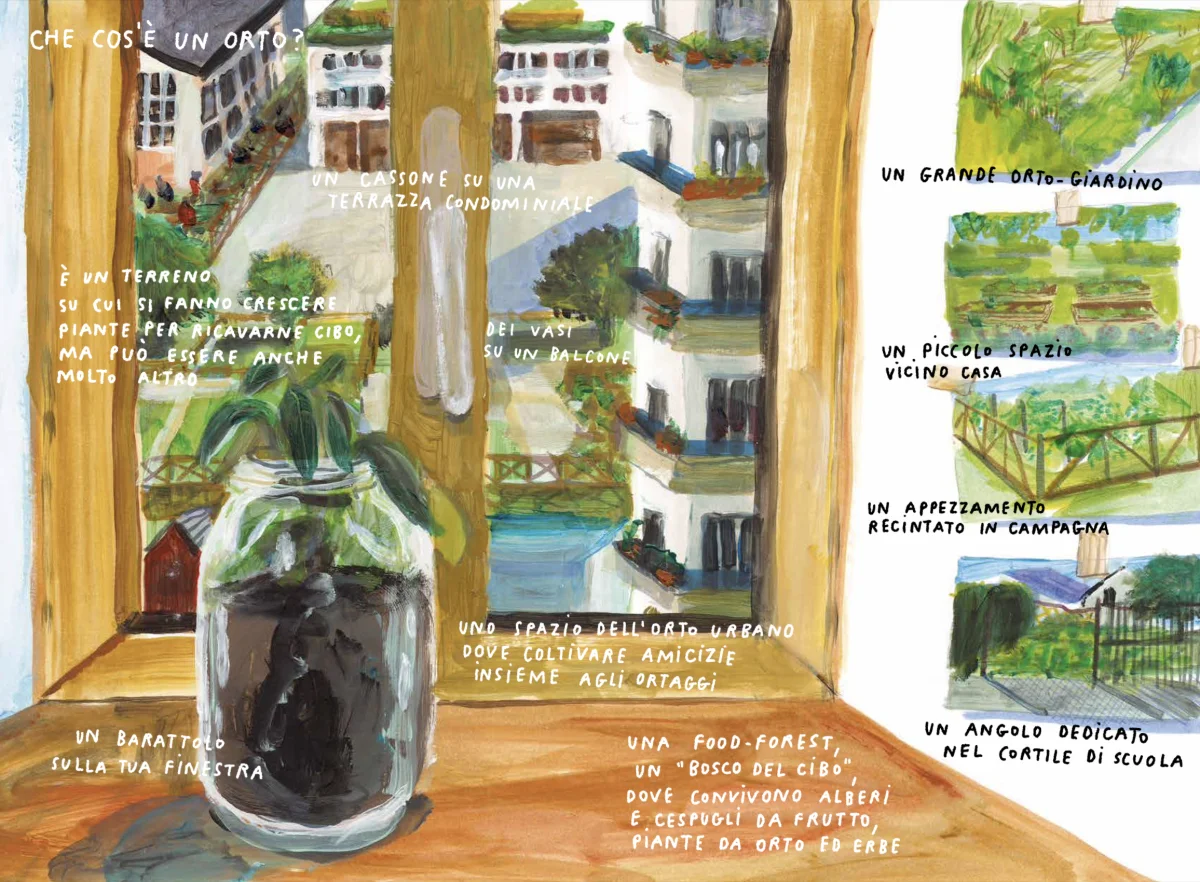 CHE COS'È UN ORTO?
È UN TERRENO
SU CUI SI FANNO CRESCERE
PIANTE PER RICAVARNE CIBO,
MA PUÒ ESSERE ANCHE
MOLTO ALTRO
UN CASSONE SU UNA
TERRAZZA CONDOMINIALE
DEI VASI
SU UN BALCONE
UNO SPAZIO DELL'ORTO URBANO
DOVE COLTIVARE AMICIZIE
INSIEME AGLI ORTAGGI
UN BARATTOLO
SULLA TUA FINESTRA
UNA FOOD-FOREST,
UN "BOSCO DEL CIBO",
DOVE CONVIVONO ALBERI
E CESPUGLI DA FRUTTO,
PIANTE DA ORTO ED ERBE
UN GRANDE ORTO-GIARDINO
UN PICCOLO SPAZIO
VICINO CASA
UN APPEZZAMENTO
RECINTATO IN CAMPAGNA
UN ANGOLO DEDICATO
NEL CORTILE DI SCUOLA